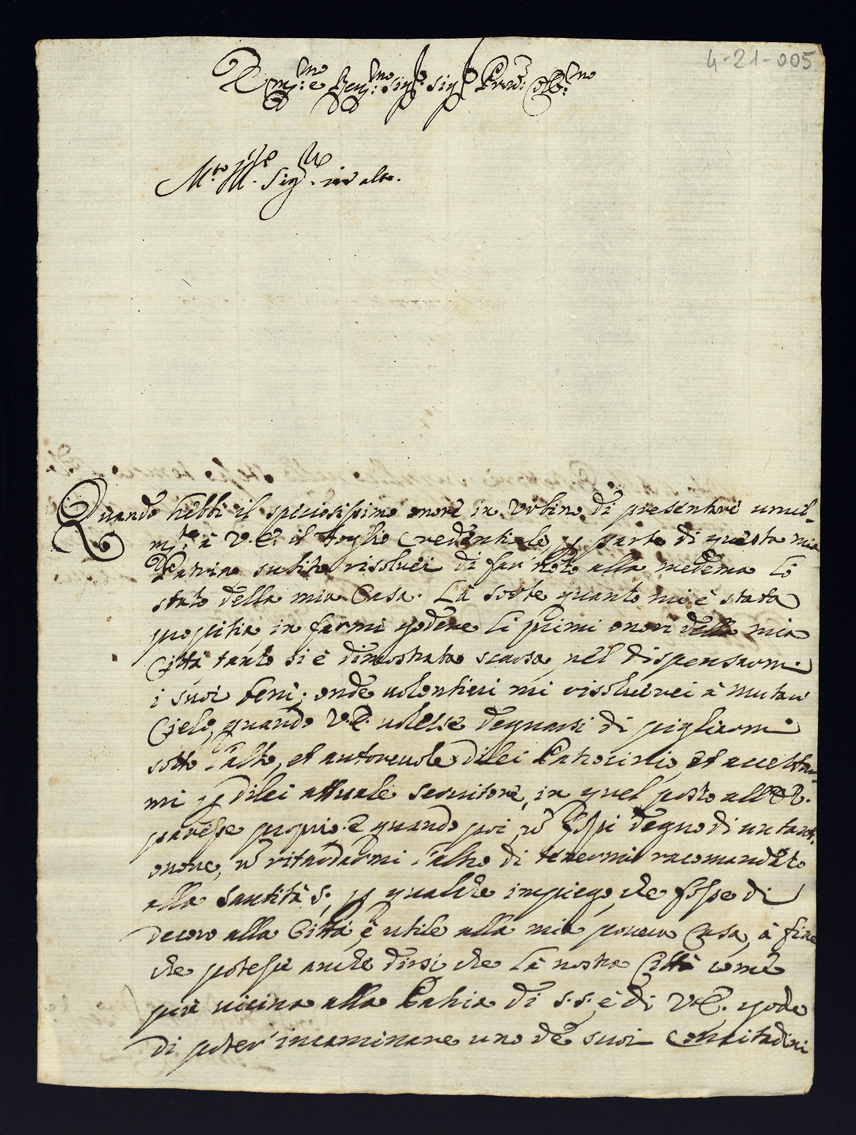 4-21-005
Em.mo e Rev.mo Sig.r Sig.r Pron. Col.mo
M.to Ill. Sig.
Quando hebbi il speciosissimo onore in Urbino di presentare umil-
m.te à V.E. il foglio credentiale p parte di questa mia
Patria subito risoluei di far noto alla medema lo
stato della mia Casa. La sorte quanto mi è stata
propitia in farmi godere li primi onori della mia
Città tanto si è dimostrata scarsa nel dispensarmi
i suoi beni; onde volentieri mi rissoluerei à mutar
Cielo, quando V.E. volesse degnarsi di pigliarmi
sotto l'alto, et autoreuole di lei Patrocinio, et accettar-
mi p di lei attuale seruitore, in quel posto all' E.V.
paresse proprio. E quando poi nō fossi degno di un tant'
onore, nō ritardarmi l'altro di tenermi racomandato
alla Santità S. p qualche impiego, che fosse di
decoro alla Città, è utile alla mia pouera Casa, à fine
che potesse anche dirsi che la nostra Città come
più uicina alla Patria di S.S. è di V.E. gode
di poter incaminare uno de suoi Concitadini